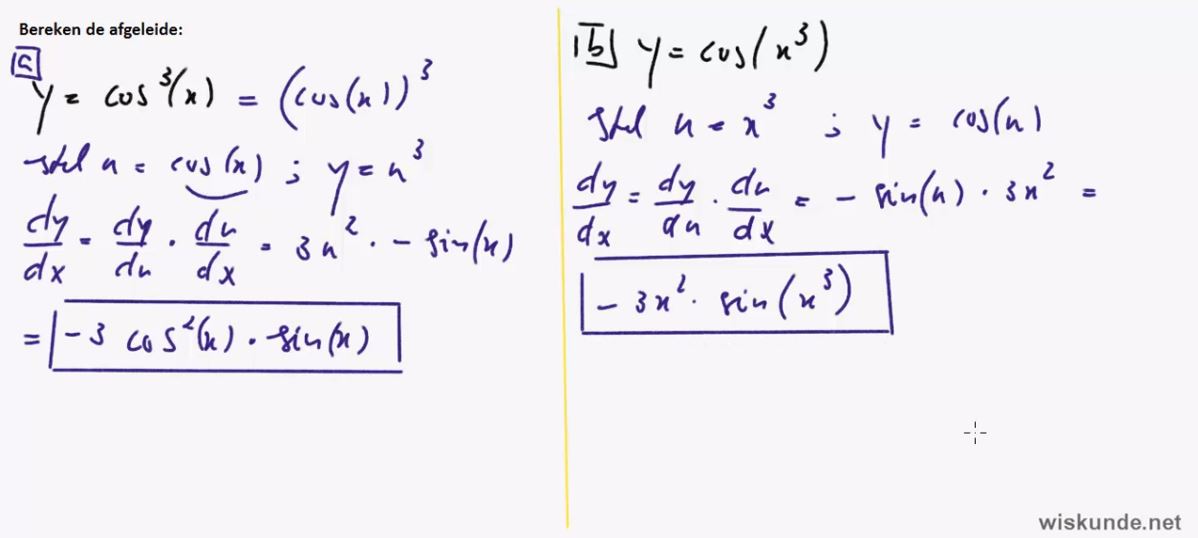 Bereken de afgeleide:
a
y = cos³(x) = (cos(x))³
stel u = cos(x) ; y = u³
dy/dx = dy/du · du/dx = 3u² · - sin(x)
= - 3 cos²(x) · sin(x)
b y = cos(x³)
Stel u = x³ ; y = cos(u)
dy/dx = dy/du · du/dx = - sin(u) · 3x² =
- 3x² · sin(x³)
wiskunde.net